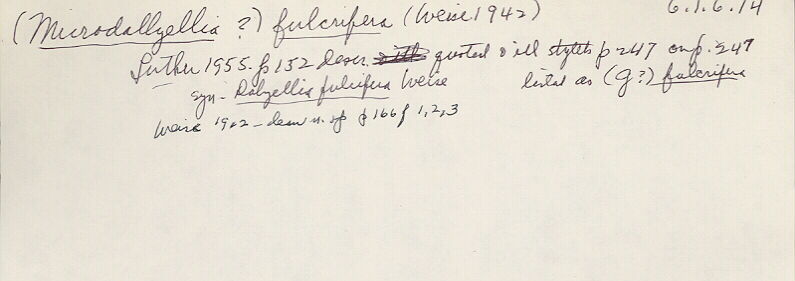 (Microdalyellia ?) fulcrifera (Weise 1942) 6.1.6.14
Luther 1955. p 132 descr. quoted & ill stylets p 247 on p. 247
syn - Dalyellia fulcrifera Weise listed as (G?) fulcrifera
Weise 1942 - descr n. sp p 166 f 1, 2, 3